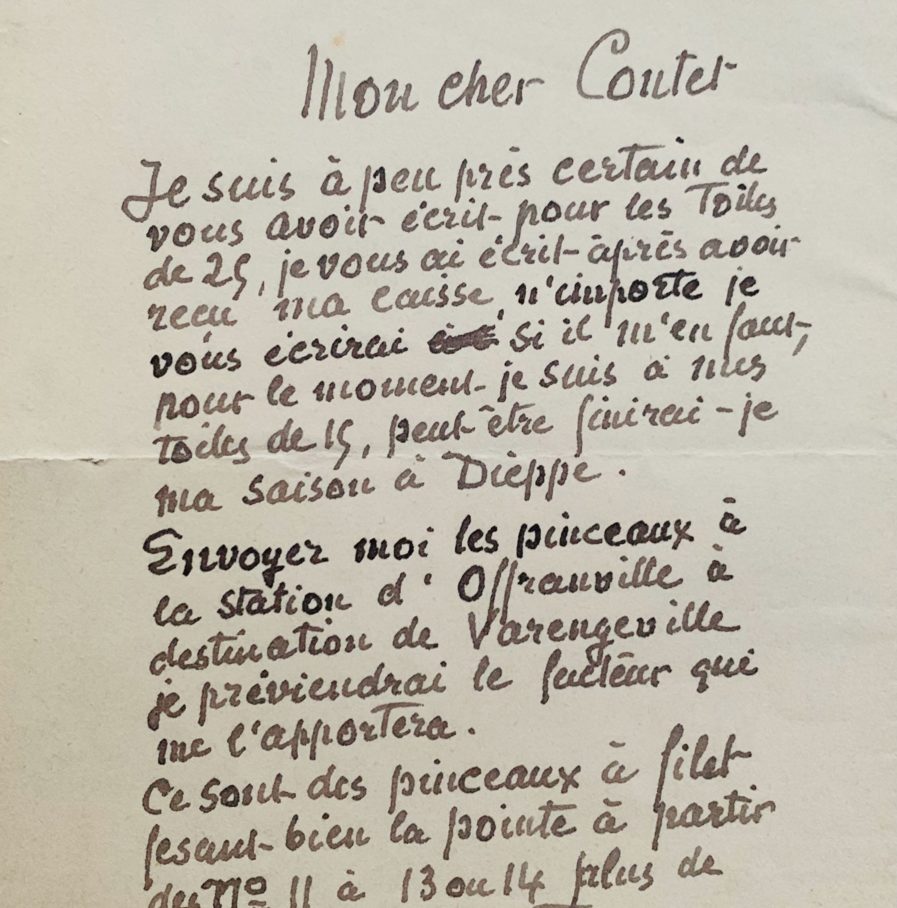 Mon cher Contet
Je suis à peu près certain de
vous avoir écrit pour les Toiles
de 25, je vous ai écrit après avoir
reçu ma caisse, n'importe je
vous écrirai si il m'en faut,
pour le moment je suis à mes
toiles de 15, peut-être finirai-je
ma saison à Dièppe.
Envoyer moi les pinceaux à
la station d'Offranville à
destination de Varengeville
je préviendrai le facteur qui
me l'apportera.
Ce sont des pinceaux à filet
fesant bien la pointe à partir
des Nº 11 à 13 ou 14 plus de